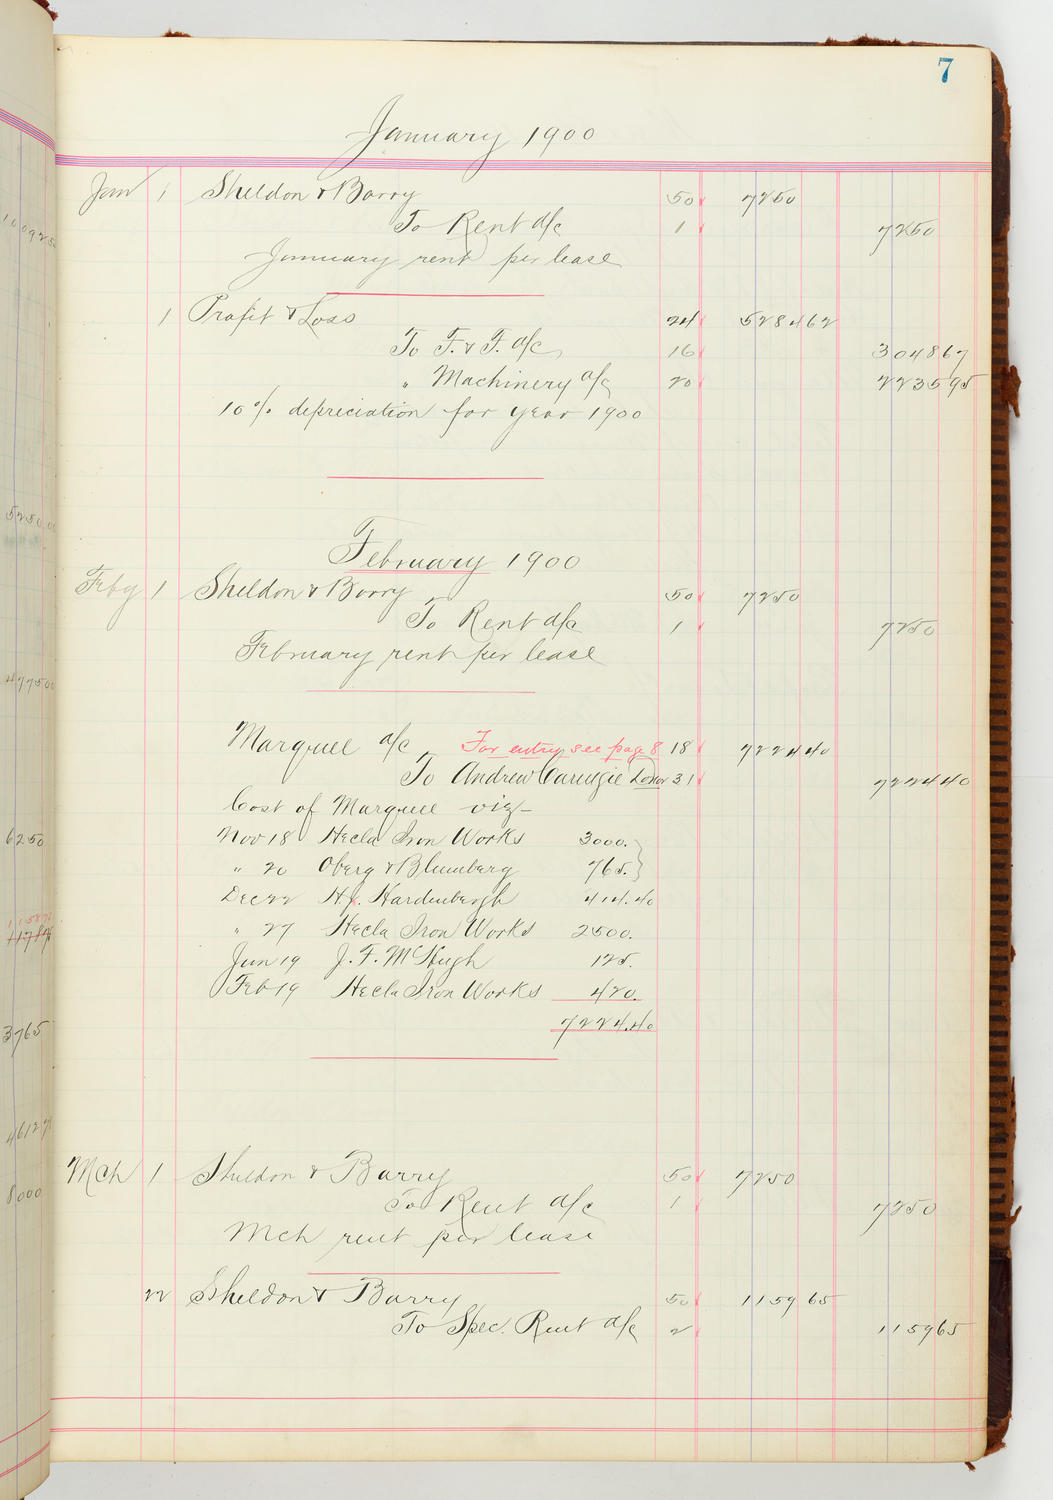 7
January 1900
Jan 1 Sheldon & Barry 50 7250
To Rent a/c 1 7250
January rent per lease
1 Profit & Loss 24 5284 62
To F. & F. a/c 16 3048 67
" Machinery a/c 20 2235 95
10% depreciation for year 1900
February 1900
Feby 1 Sheldon & Barry 50 7250
To Rent a/c 1 7250
February rent per lease
Marquee a/c For entry see page 8 18 7224 40
To Andrew Carnegie Donor 31 7224 40
Cost of Marquee viz-
Nov 18 Hecla Iron Works 3000.
" 20 Oberg & Blumberg 765.
Dec 22 H.J. Hardenbergh 414.40
" 27 Hecla Iron Works 2500.
Jan 19 J. F. McHugh 125.
Feb 19 Hecla Iron Works 420.
7224.40
Mch 1 Sheldon & Barry 50 7250
To Rent a/c 1 7250
Mch rent per lease
22 Sheldon & Barry 50 1159 65
To Spec. Rent a/c 2 1159 65
10092 50
5250.00
47750
6250
11587
3765
4612
8000